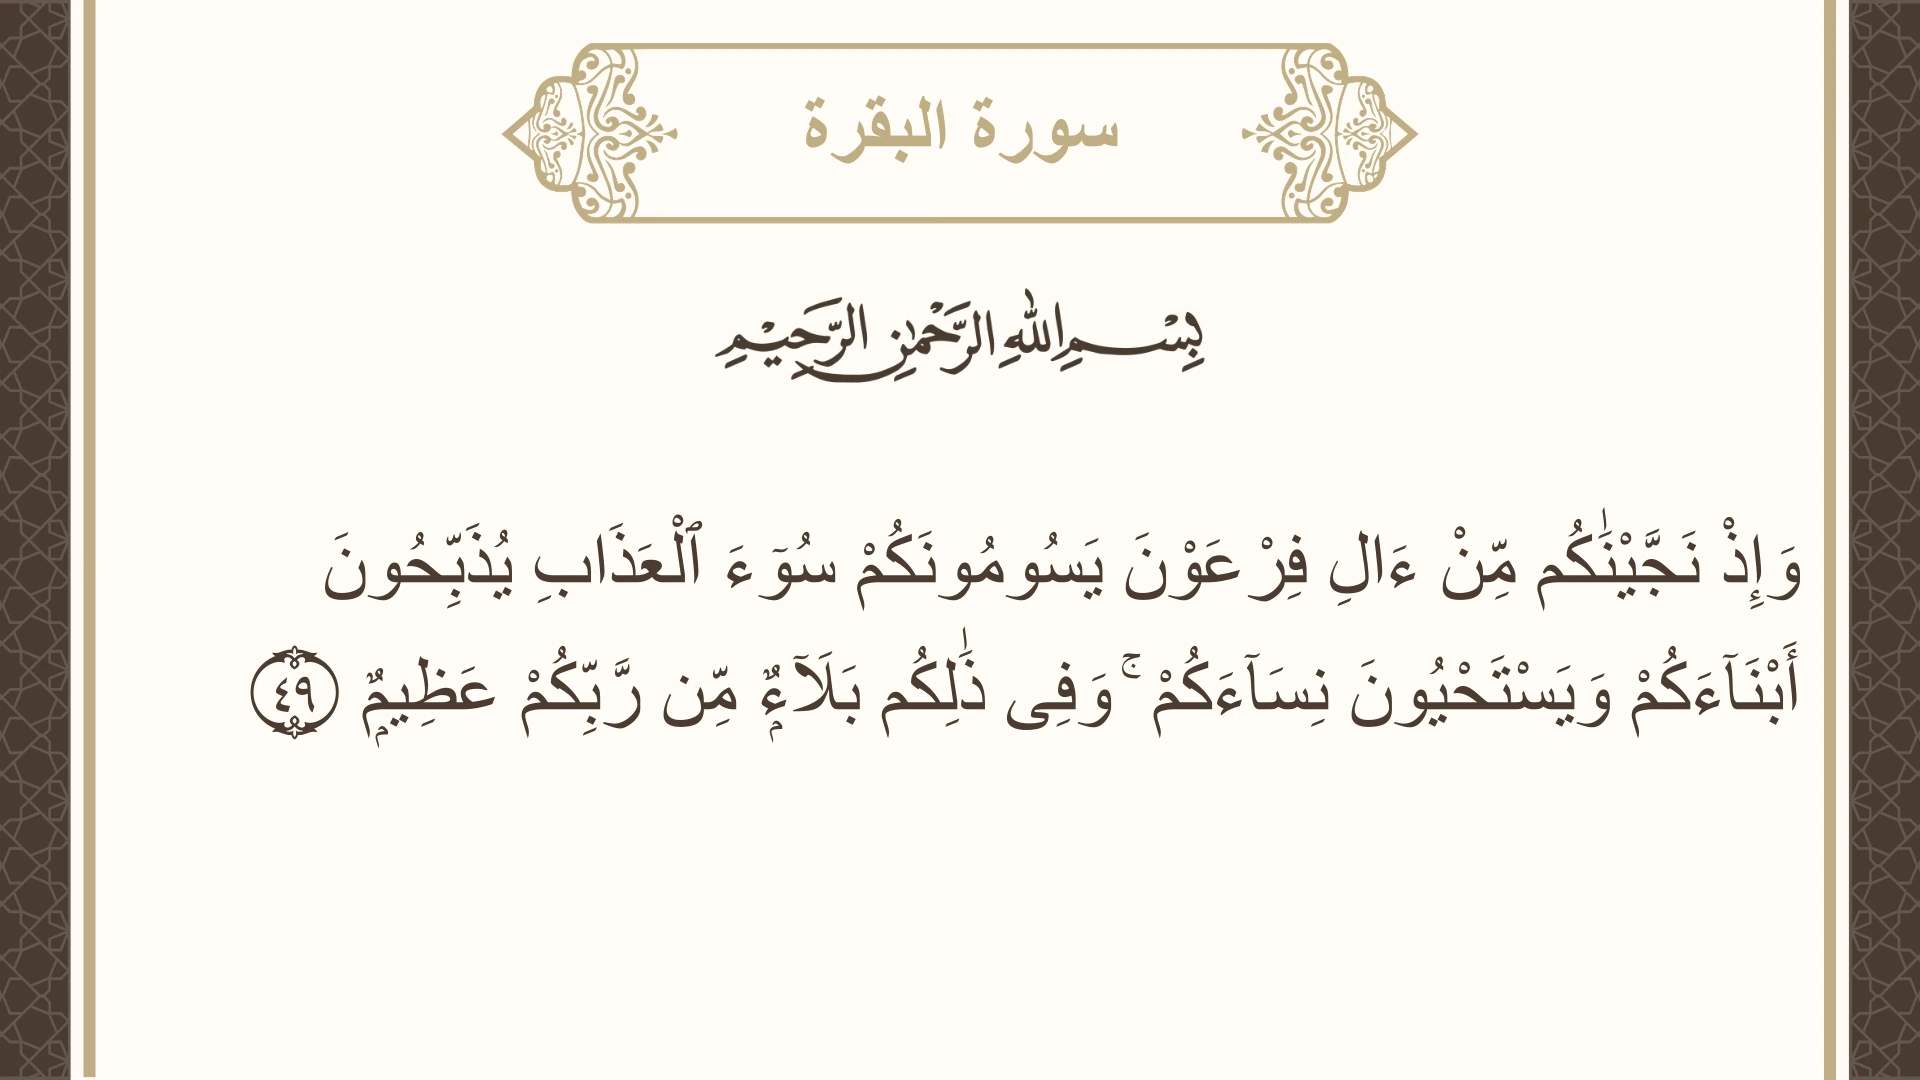 سورة البقرة
بِسْمِ اللهِ الرَّحْمٰنِ الرَّحِيْمِ
وَإِذْ نَجَّيْنَٰكُم مِّنْ ءَالِ فِرْعَوْنَ يَسُومُونَكُمْ سُوٓءَ ٱلْعَذَابِ يُذَبِّحُونَ
أَبْنَآءَكُمْ وَيَسْتَحْيُونَ نِسَآءَكُمْ ۚ وَفِى ذَٰلِكُم بَلَآءٌۭ مِّن رَّبِّكُمْ عَظِيمٌۭ ٤٩